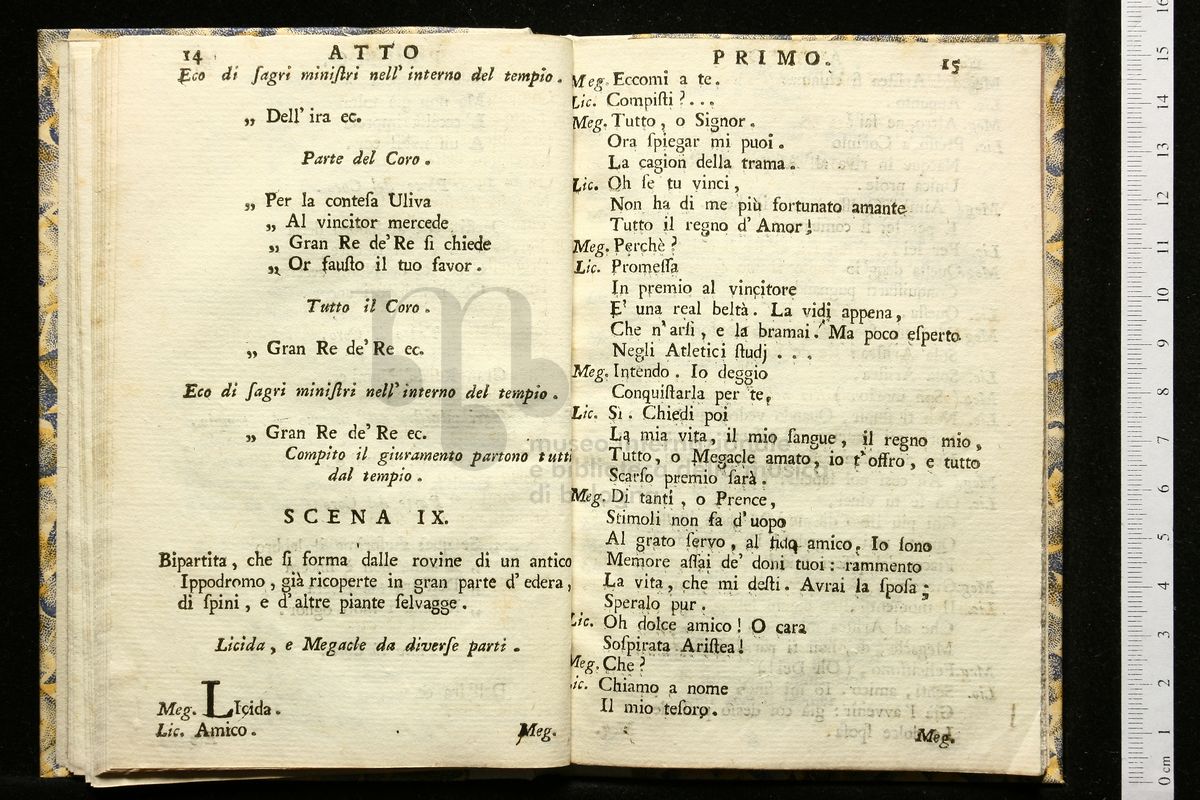 14 ATTO
Eco di ſagri miniſtri nell' interno del tempio.
„ Dell' ira ec.
Parte del Coro.
„ Per la conteſa Uliva
„ Al vincitor mercede
„ Gran Re de' Re ſi chiede
„ Or fauſto il tuo favor.
Tutto il Coro.
„ Gran Re de' Re ec.
Eco di ſagri miniſtri nell' interno del tempio.
„ Gran Re de' Re ec.
Compito il giuramento partono tutti
dal tempio.
SCENA IX.
Bipartita, che ſi forma dalle rovine di un antico
Ippodromo, già ricoperte in gran parte d' edera,
di ſpini, e d' altre piante ſelvagge.
Licida, e Megacle da diverſe parti.
Meg. Licida.
Lic. Amico.
Meg.
PRIMO. 15
Meg. Eccomi a te.
Lic. Compiſti?...
Meg. Tutto, o Signor.
Ora ſpiegar mi puoi.
La cagion della trama.
Lic. Oh ſe tu vinci,
Non ha di me più fortunato amante
Tutto il regno d' Amor!
Meg. Perchè?
Lic. Promeſſa
In premio al vincitore
E' una real beltà. La vidi appena,
Che n' arſi, e la bramai. Ma poco eſperto
Negli Atletici ſtudj...
Meg. Intendo. Io deggio
Conquiſtarla per te,
Lic. Sì. Chiedi poi
La mia vita, il mio ſangue, il regno mio,
Tutto, o Megacle amato, io t' offro, e tutto
Scarſo premio ſarà.
Meg. Di tanti, o Prence,
Stimoli non fa d' uopo
Al grato ſervo, al fido amico. Io ſono
Memore aſſai de' doni tuoi: rammento
La vita, che mi deſti. Avrai la ſpoſa;
Speralo pur.
Lic. Oh dolce amico! O cara
Soſpirata Ariſtea!
Meg. Che?
Lic. Chiamo a nome
Il mio teſoro.
Meg.
museo internazionale
e biblioteca della musica
di bologna
0 cm 1 2 3 4 5 6 7 8 9 10 11 12 13 14 15 16